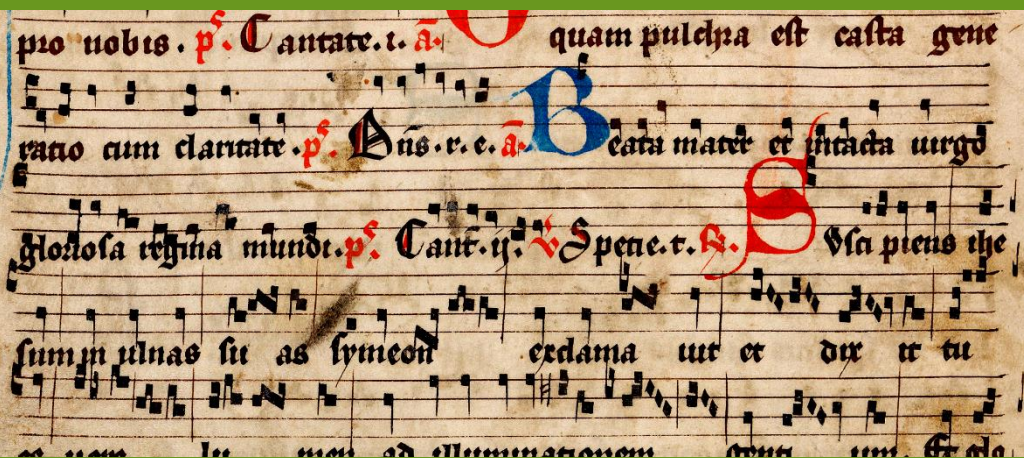 pro nobis . ps. Cantate .i. a. O quam pulchra est casta gene
ratio cum claritate . ps. Dns . r . e . a. Beata mater et intacta uirgo
gloriosa regina mundi . ps. Cant . ij . V Specie . t . R. Suscipiens ihe
sum in ulnas su as symeon exclama uit et dix it tu
es uere lu men ad illuminationem genti um . Et glo